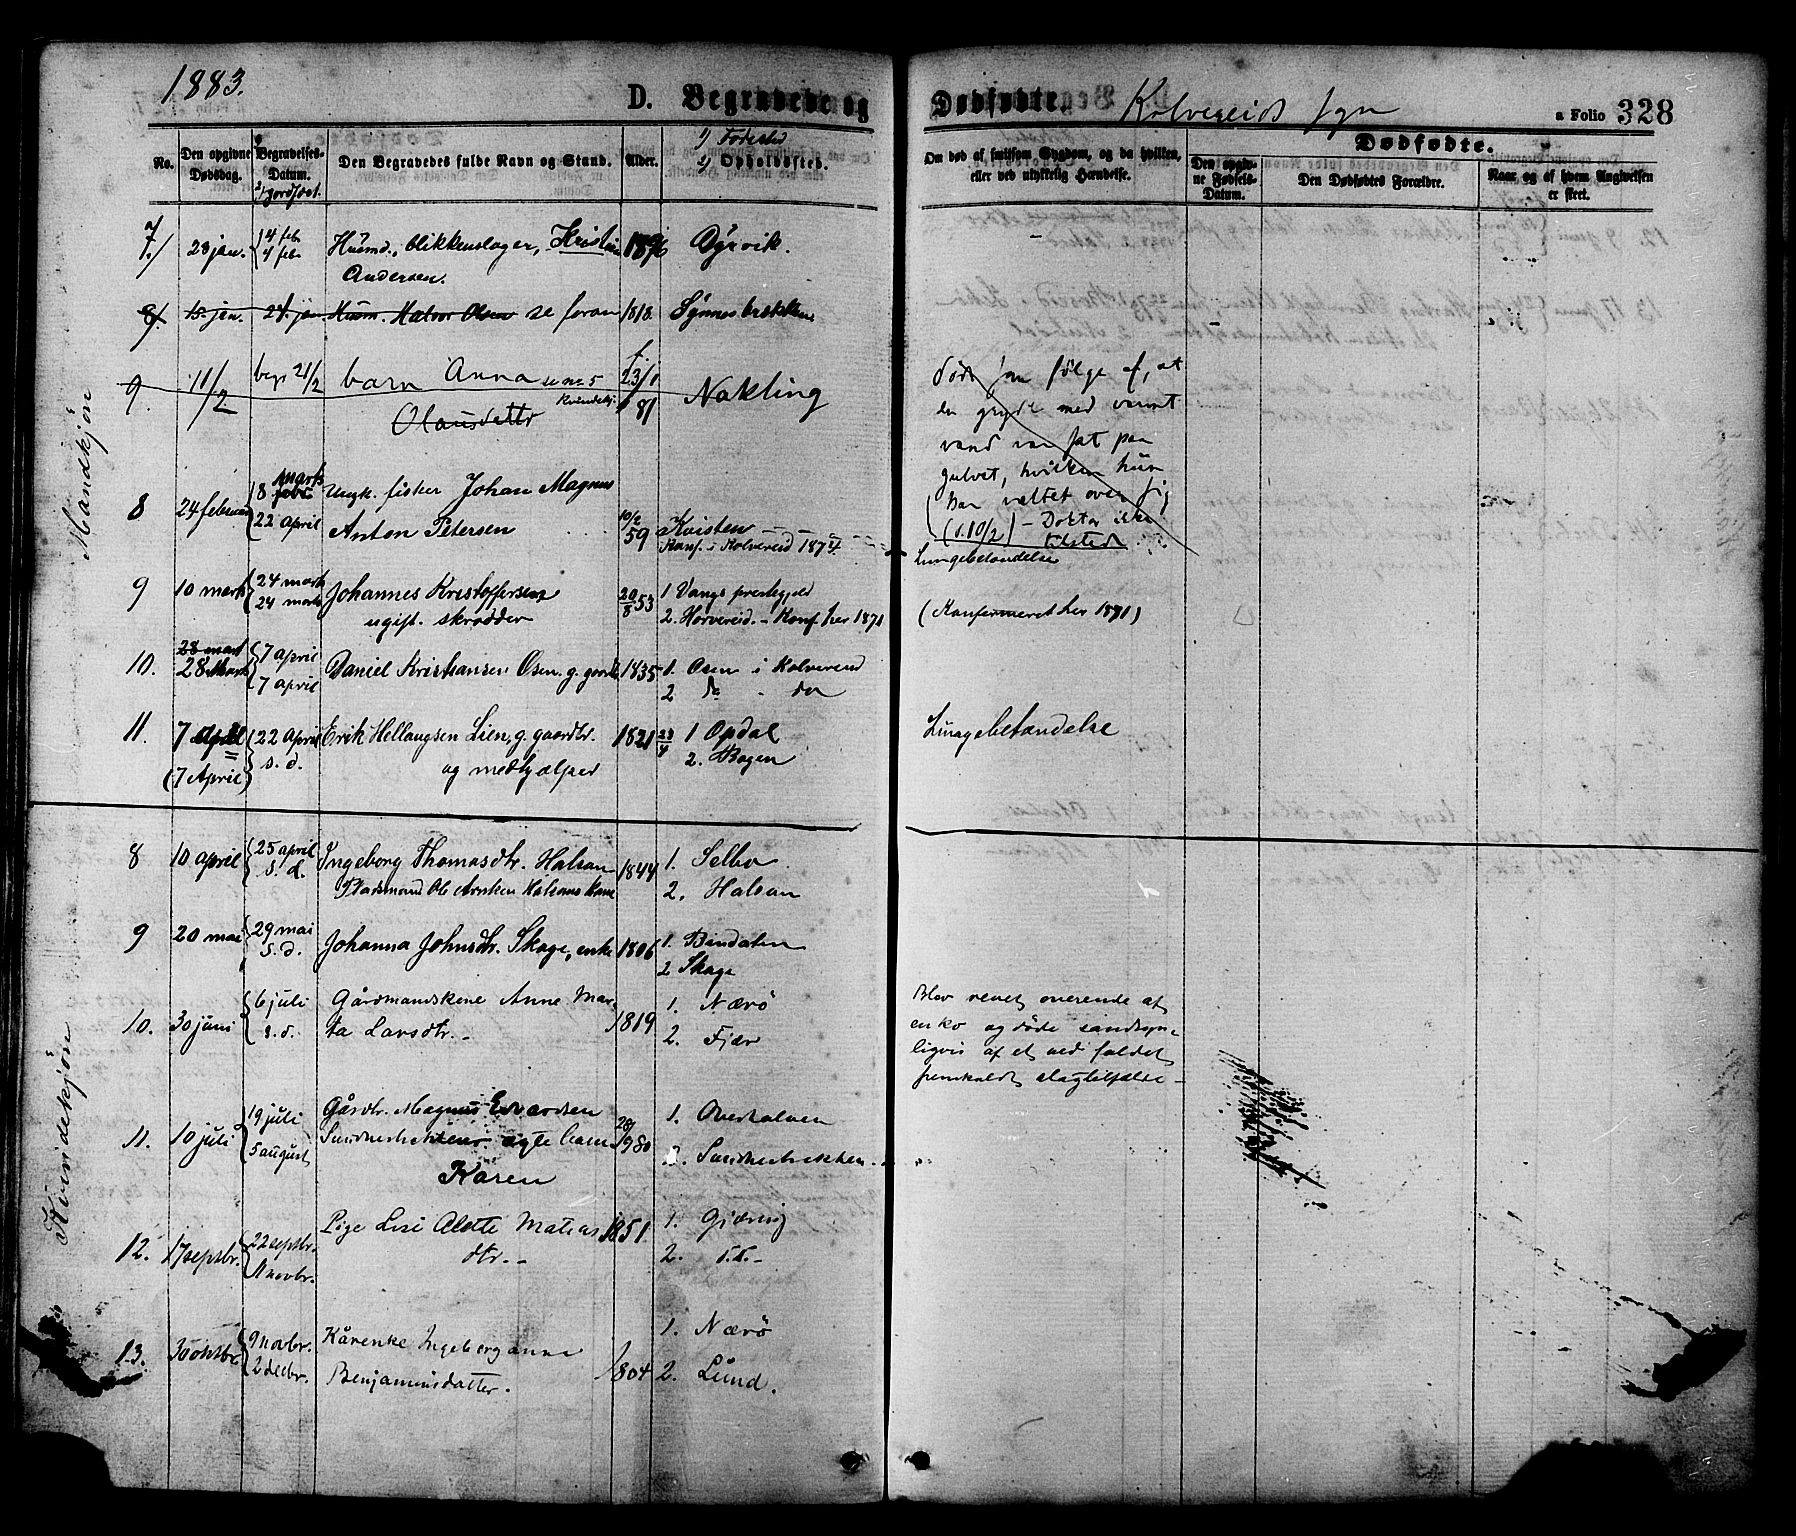 1883.
D. Begravede og Dødfødte. Kolvereids sogn
a Folio 328
1) Fødested
Dødfødte.
No. Den opgivne Dødsdag. Begravelses-Datum. 2) Jordfæst. Den Begravedes fulde Navn og Stand. Alder. 2) Opholdssted. Om død af smitsom Sygdom, og da hvilken, eller ved ulykkelig Hændelse. Den opgivne Fødsels-Datum. Den Dødfødtes Forældre. Naar og af hvem Angivelsen er skeet.
Mandkjøn
7. 23 jan. 14 feb. Husmd., blikkenslager, Kristian Dyrvik.
4 feb. Andersen.
8 15 jan. 24. jan Husm. Halvor Olsen se foran 1818. Synnesbrækken
9. 11/2 begr 21/2 barn Anna se no 5 f. 23/1 81 Nakling
Kvindekj.
Olausdattr
døde som følge af, at
en gryde med varmt
vand var sat paa
gulvet, hvilken hun
har væltet over sig
(d. 10/2) - Doktor ikke
tilstede
8 24 februar 18 marts Ungk. fisker Johan Magnus
22 april Anton Petersen 10/2 59 Kvisten
Konf. i Kolvereid 1874
Lungebetændelse
9 10 marts 24 marts Johannes Kristoffersen 20/8 53 1 Vangs prestegjeld
24 marts ugift. skrædder 2. Horvereid. - Konf her 1871
(Konfirmeret her 1871)
28 mart
10. 28 Mart 7 april Daniel Kristiansen Osen. g. gaardb. 1835 1. Osen i Kolvereid
7 april 2 do - do
11. 7 April 22 April Erik Hellaugsen Lien, g. gaardbr. 1821 23/4 1 Opdal
(7 April) s. d. og medhjælper 2. Bogen
Lungebetændelse
Kvindekjøn
8 10 april 25 april Ingeborg Thomasdtr. Halsan 1844 1. Selbo
s. d. Pladsmand Ole Arntsen Halsans kone 2. Halsan
9 20 mai 29 mai Johanna Johnsdtr. Skage, enke 1806 1. Bindalen
s. d. 2 Skage
10. 30 juni 6 juli Gårdmandskone Anne Mar- 1819 1. Nærö
s. d. ta Larsdtr. - 2. Fjær
Blev revet overende af
en ko og døde sandsyn-
ligvis af et ved faldet
fremkaldt slagtilfælde -
11. 10 juli 19 juli Gårdbr. Magnus Edvardsen 28/1 980 1. Overhalven
5 august ægte barn 2.
Karen
12. 17 septbr. 22 septbr. Pige Lise Alette Matias 1851. 1. Gjærvig
11 novbr. dtr. - 2. -
13. 30 oktbr 9 novbr. Kårenke Ingeborganna 1. Nærö
2 decbr. Benjaminsdatter. 1804 2. Lund.